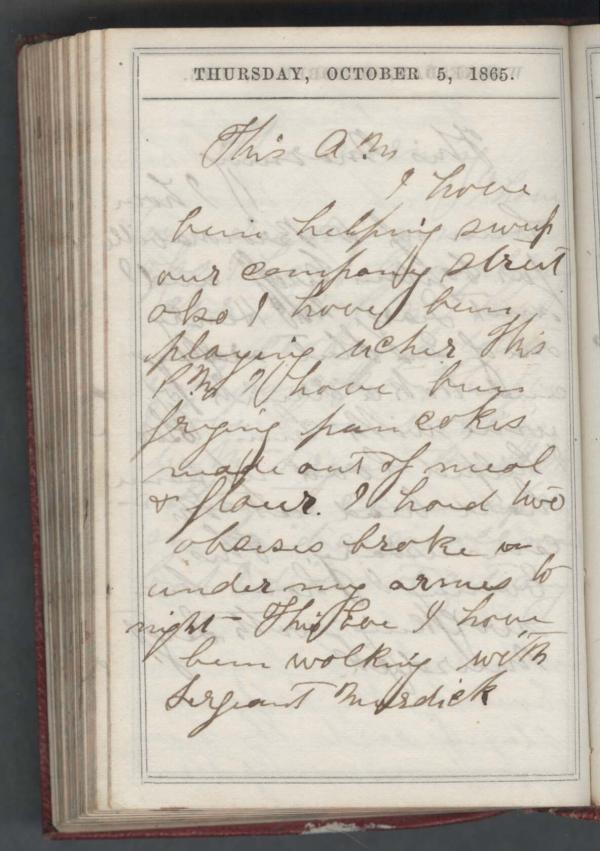 THURSDAY, OCTOBER 5, 1865.
This A M
I have
been helping sweep
our company street
also I have been
playing ucher This
P.M. I have been
frying pancakes
made out of meal
& flour. I had two
absesses broke
under my armes to
night - This Eve I have
been walking with
Sergeant Murdick